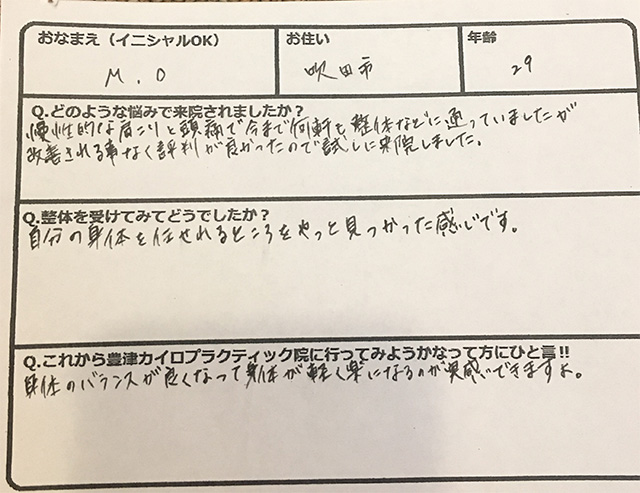 おなまえ（イニシャルOK） お住い 年齢
M.O 吹田市 29
Q.どのような悩みで来院されましたか？
慢性的な肩こりと頭痛で今まで何軒も整体などに通っていましたが
改善される事なく評判が良かったので試しに来院しました。
Q.整体を受けてみてどうでしたか？
自分の身体を任せれるところをやっと見つかった感じです。
Q.これから豊津カイロプラクティック院に行ってみようかなって方にひと言!!
身体のバランスが良くなって身体が軽く楽になるのが実感できますよ。